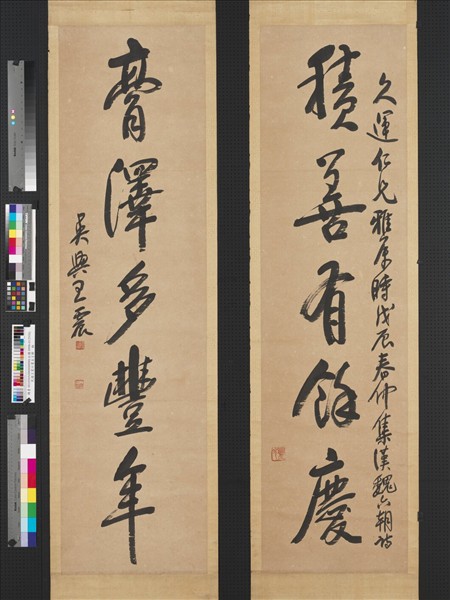 久運仁兄雅屬時戊辰春仲集漢魏六朝詩
積善有餘慶
膏澤多豐年
吳興王震